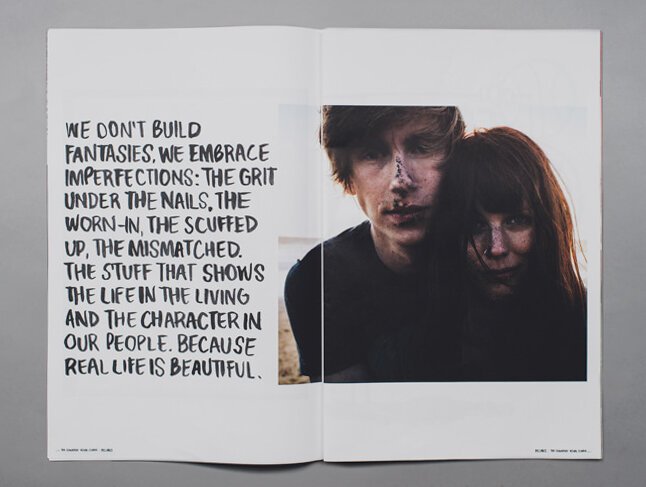 WE DON'T BUILD
FANTASIES, WE EMBRACE
IMPERFECTIONS: THE GRIT
UNDER THE NAILS, THE
WORN-IN, THE SCUFFED
UP, THE MISMATCHED.
THE STUFF THAT SHOWS
THE LIFE IN THE LIVING
AND THE CHARACTER IN
OUR PEOPLE. BECAUSE
REAL LIFE IS BEAUTIFUL.